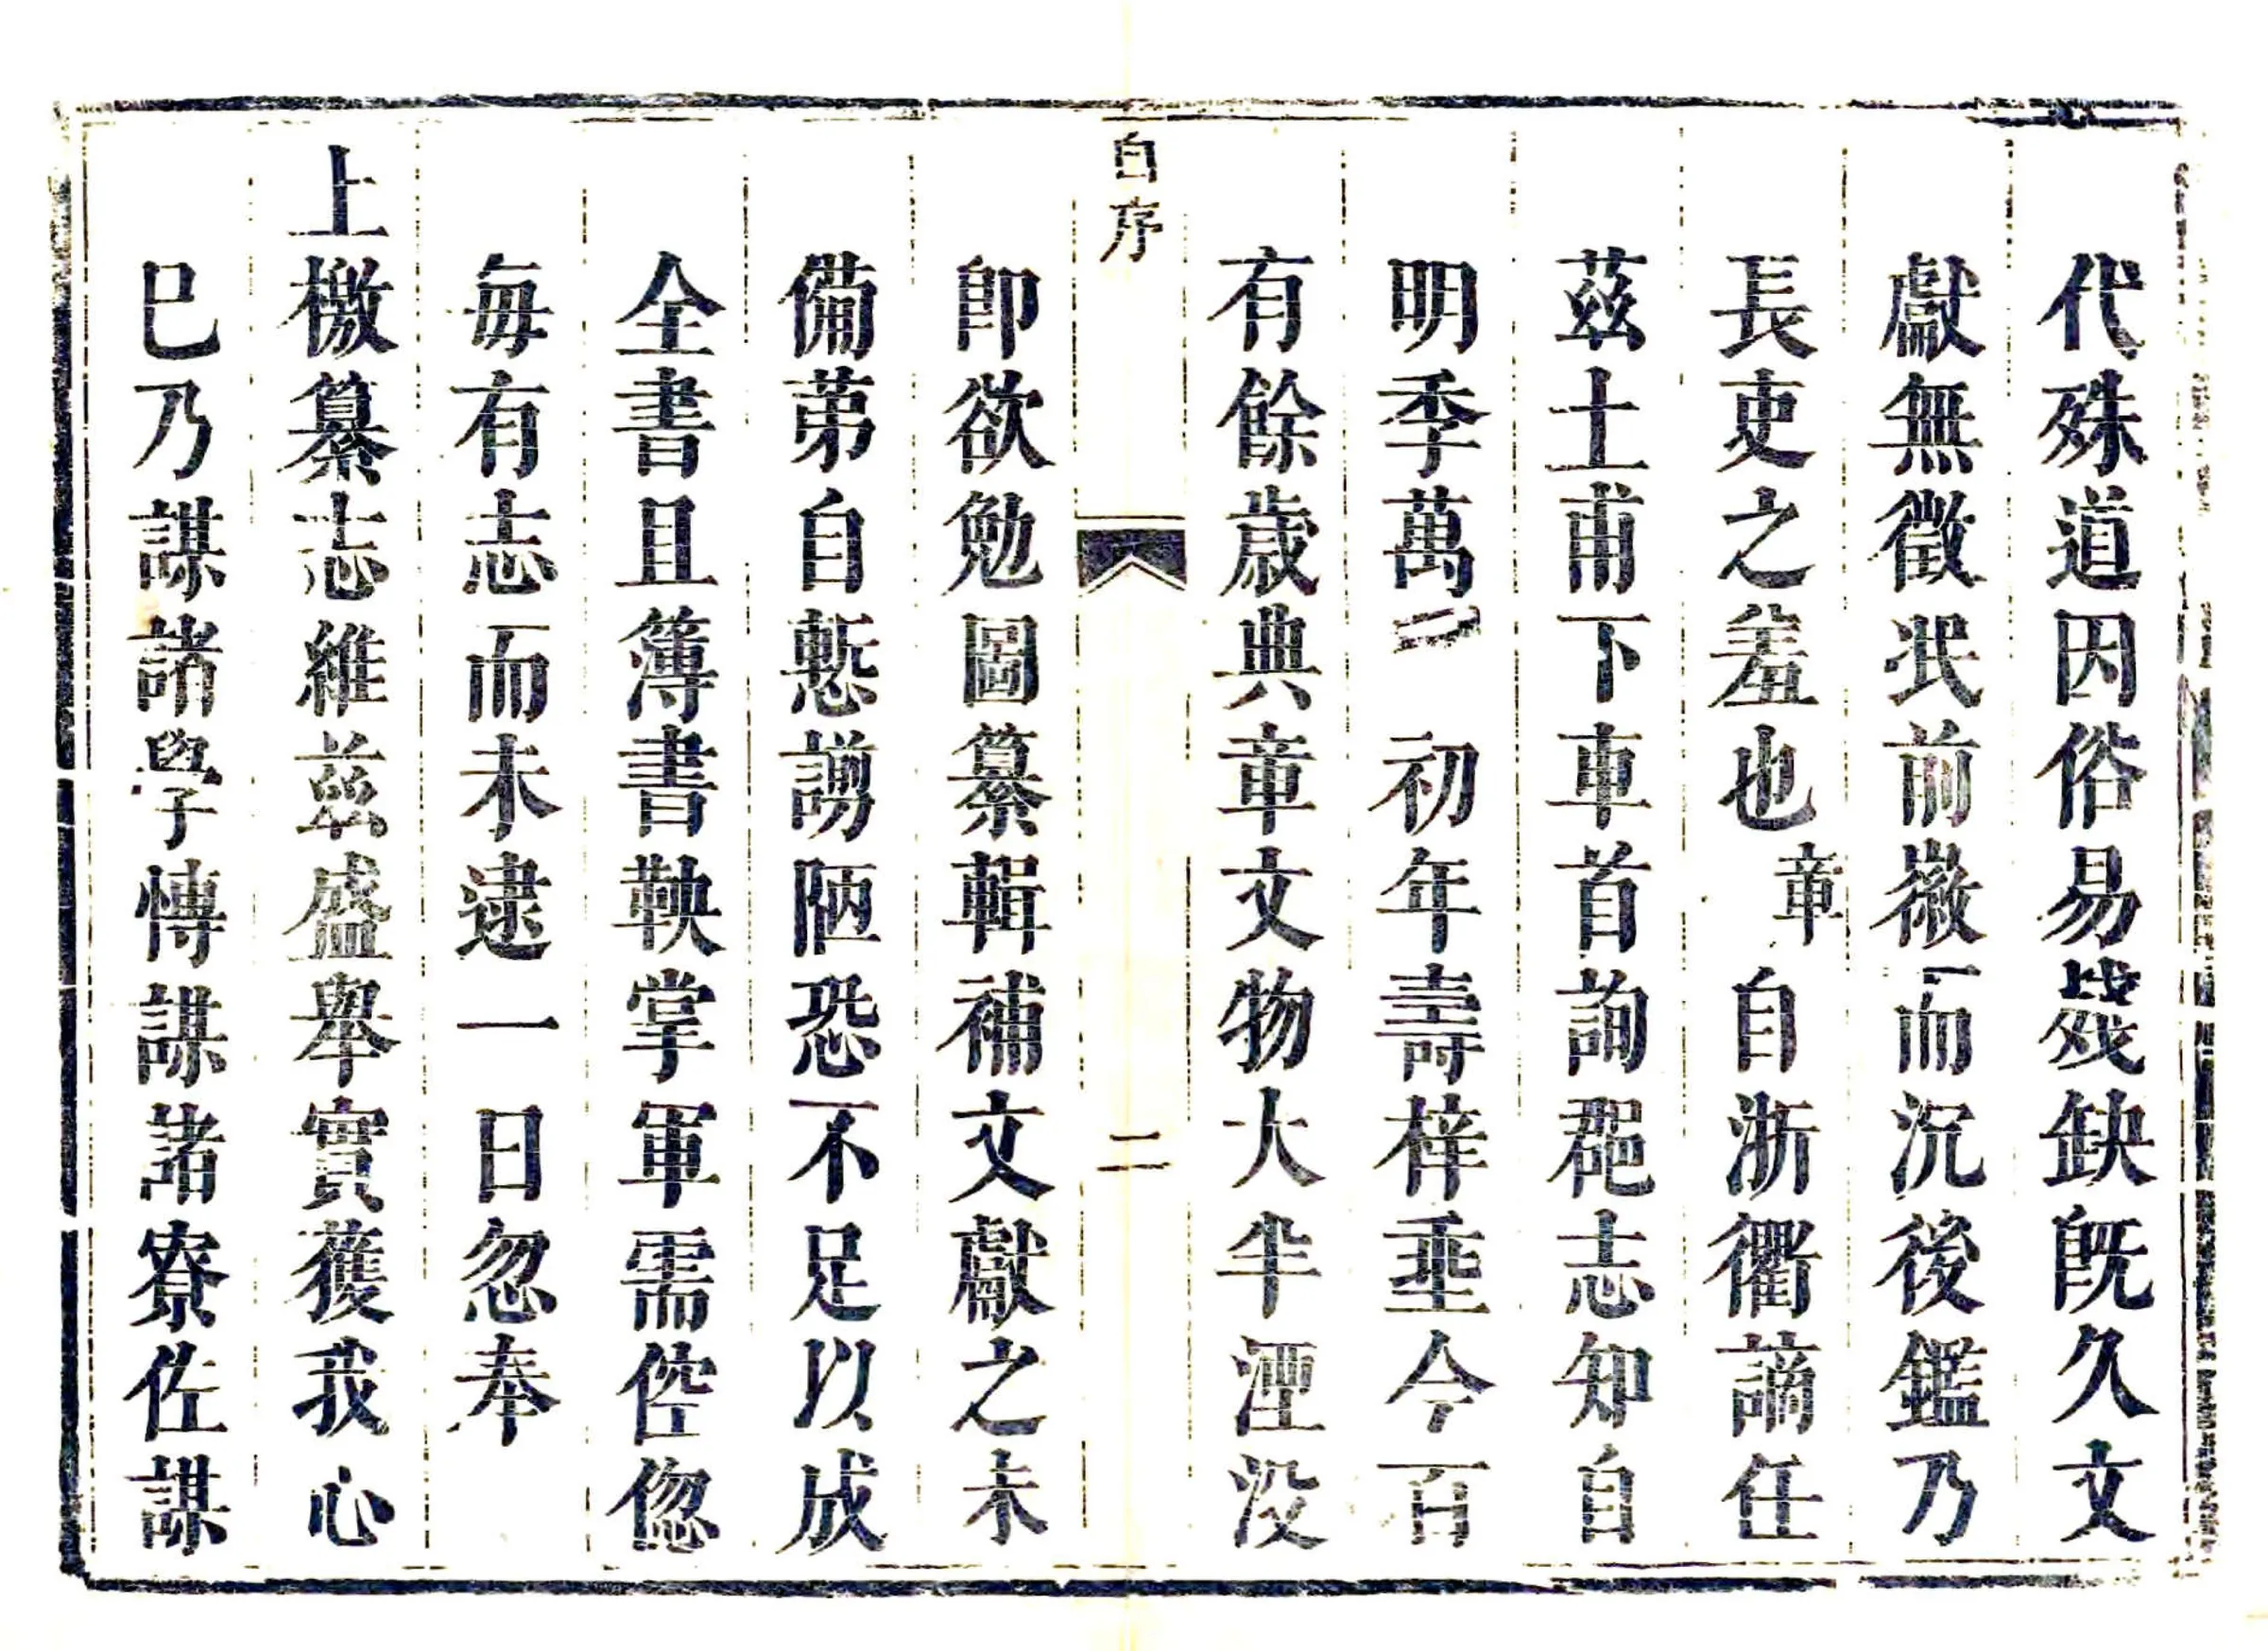 代殊道因俗易殘缺既久文
獻無徵民前徽而沉後鑑乃
長吏之羞也章自浙衢謫任
茲土甫下車首詢郡志知自
明季萬 初年壽梓垂今百
有餘歲典章文物大半湮没
自序 二
即欲勉圖纂輯補文獻之未
備苐自慙謭陋恐不足以成
全書且簿書鞅掌軍需倥偬
每有志而未逮一日忽奉
上檄纂志維茲盛舉實獲我心
巳乃謀諸學博謀諸寮佐謀